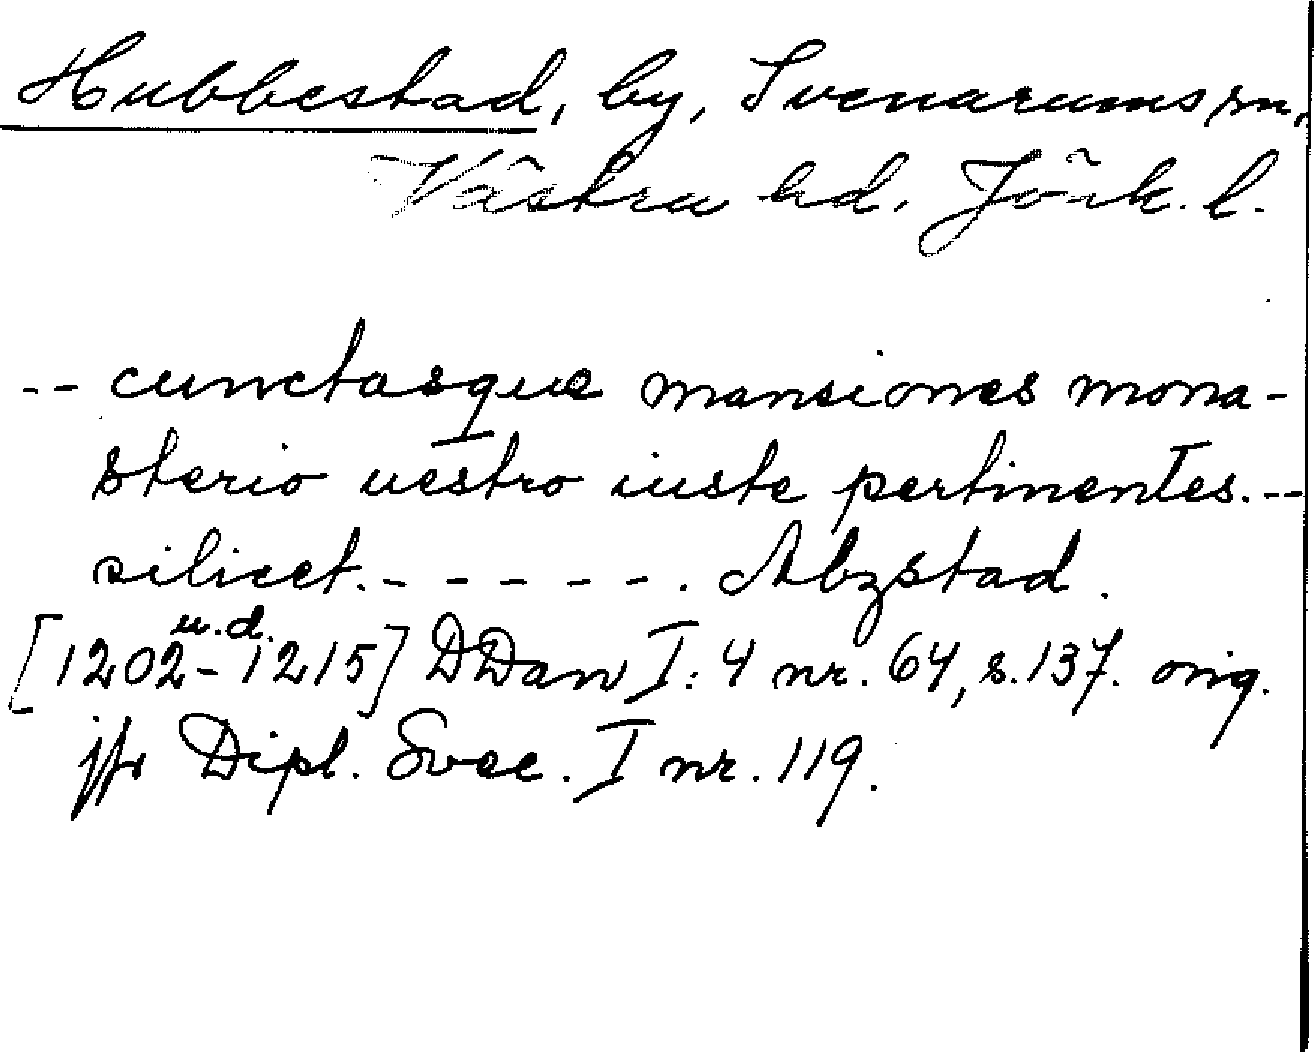 Hubbestad, by, Svenarums sn,
Västra hd. Jönk. l.
-- cunctasque mansiones mona-
sterio uestro iuste pertinentes. --
silicet. - - - - - - . Abzstad.
u.d.
[1202-1215] DDan I: 4 nr. 64, s. 137. orig.
jfr Dipl. Svec. I nr. 119.